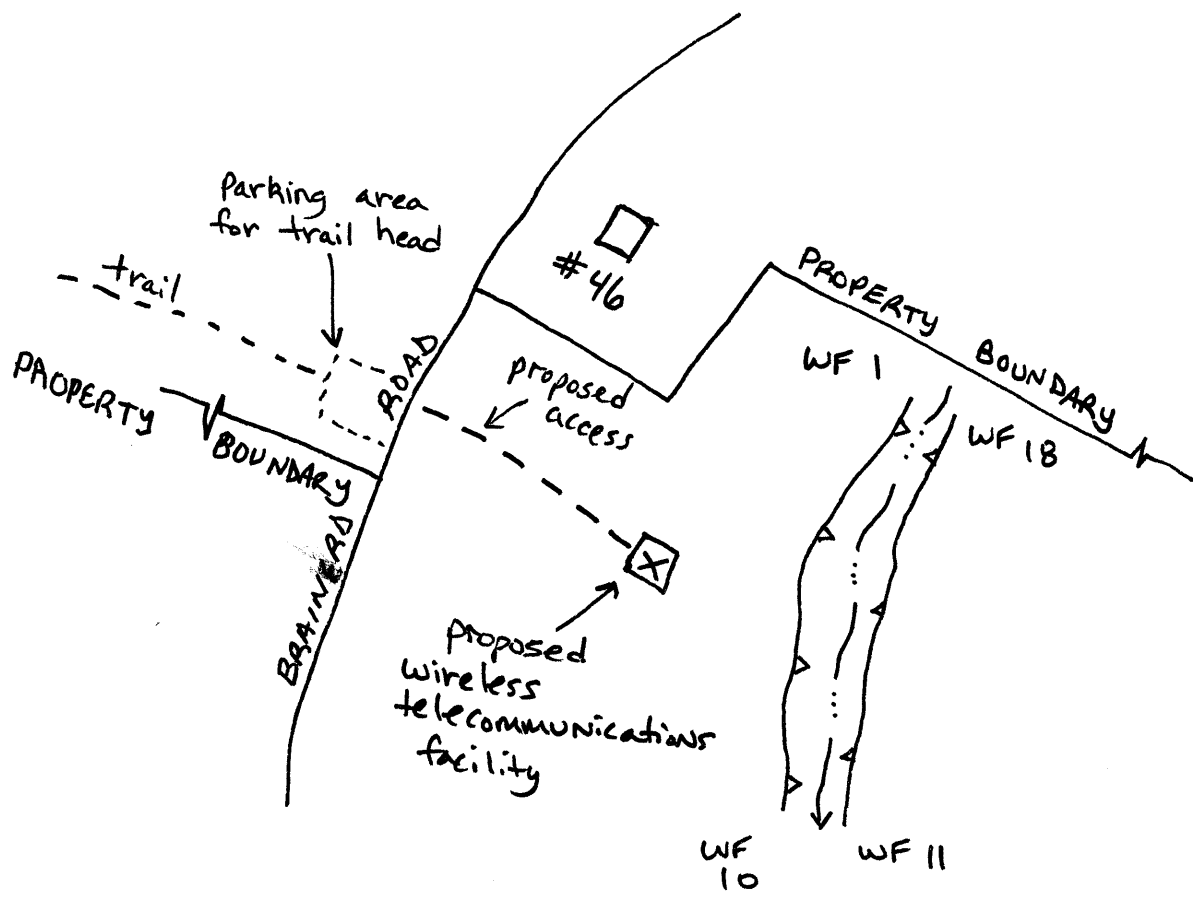 Parking area
for trail head
trail
#46
PROPERTY
BOUNDARY
PROPERTY
BOUNDARY
BRAINERD
ROAD
proposed
access
WF 1
WF 18
proposed
wireless
telecommunications
facility
WF
10
WF 11